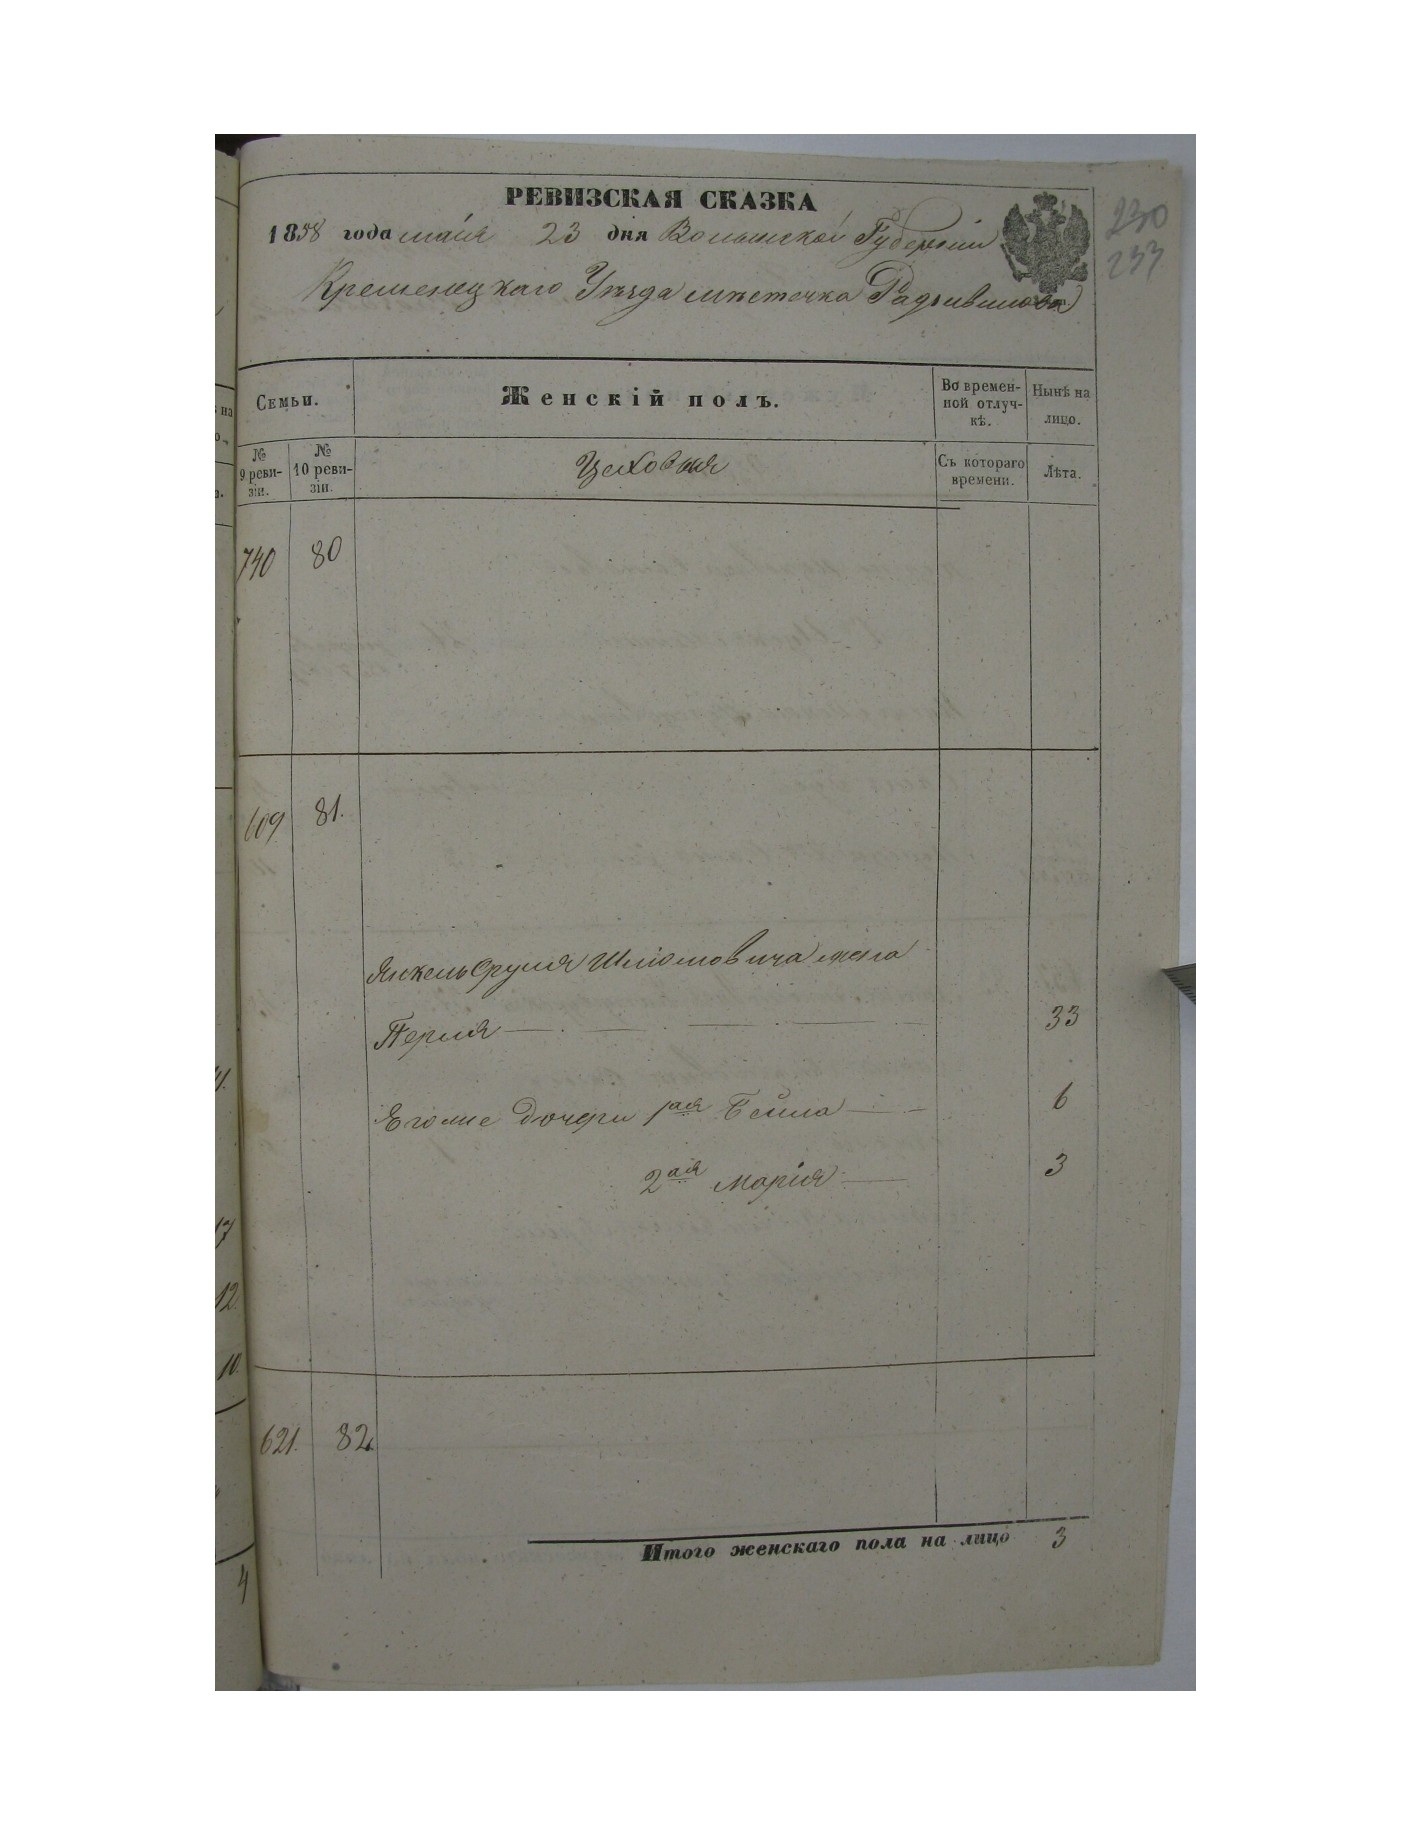 230
233
РЕВИЗСКАЯ СКАЗКА
1858 года маiя 23 дня Волынской Губернiи
Кременецкаго Уѣзда мѣстечка Радзивилова
Семьи.
Женскiй полъ.
Во времен-
ной отлуч-
кѣ.
Нынѣ на
лицо.
№
9 реви-
зiи.
№
10 реви-
зiи.
Цеховыя
Съ котораго
времени.
Лѣта.
740 80
609 81.
Янкель Сруля Шлiомовича жена
Перля 33
Его же дочери 1ая Бейла 6
2ая Марiя 3
621. 82.
Итого женскаго пола на лицо 3
17
12.
10.
4